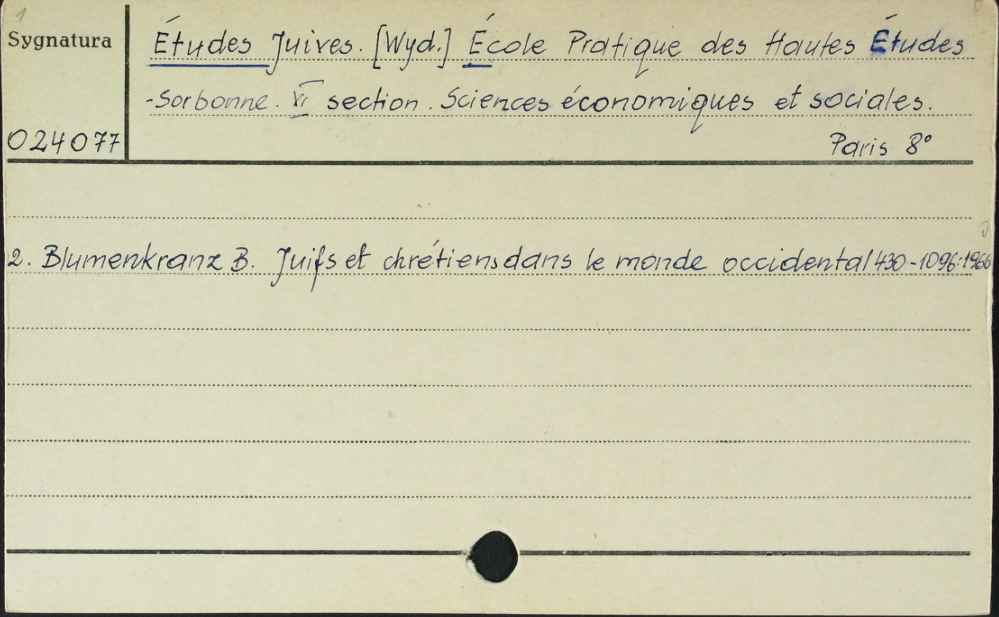 Sygnatura
Études Juives. [Wyd.] École Pratique des Hautes Études
-Sorbonne. VI section. Sciences économiques et sociales.
024077
Paris 8°
2. Blumenkranz B. Juifs et chrétiens dans le monde occidental 430-1096: 1966